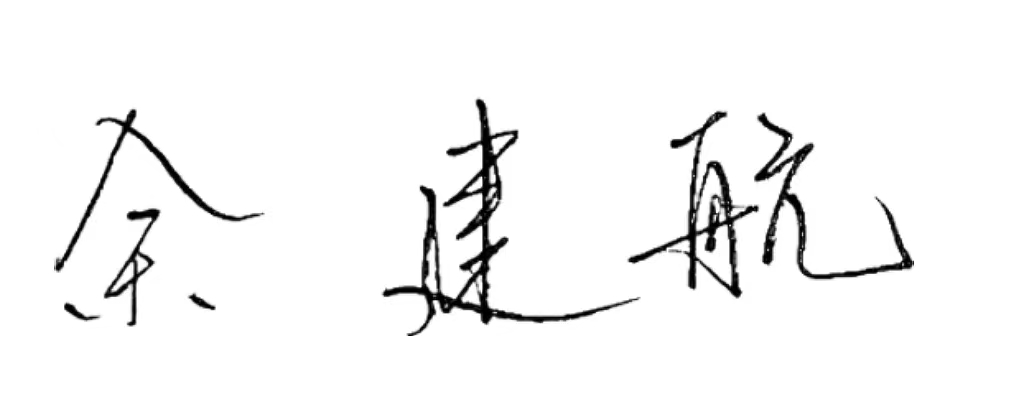 余建航